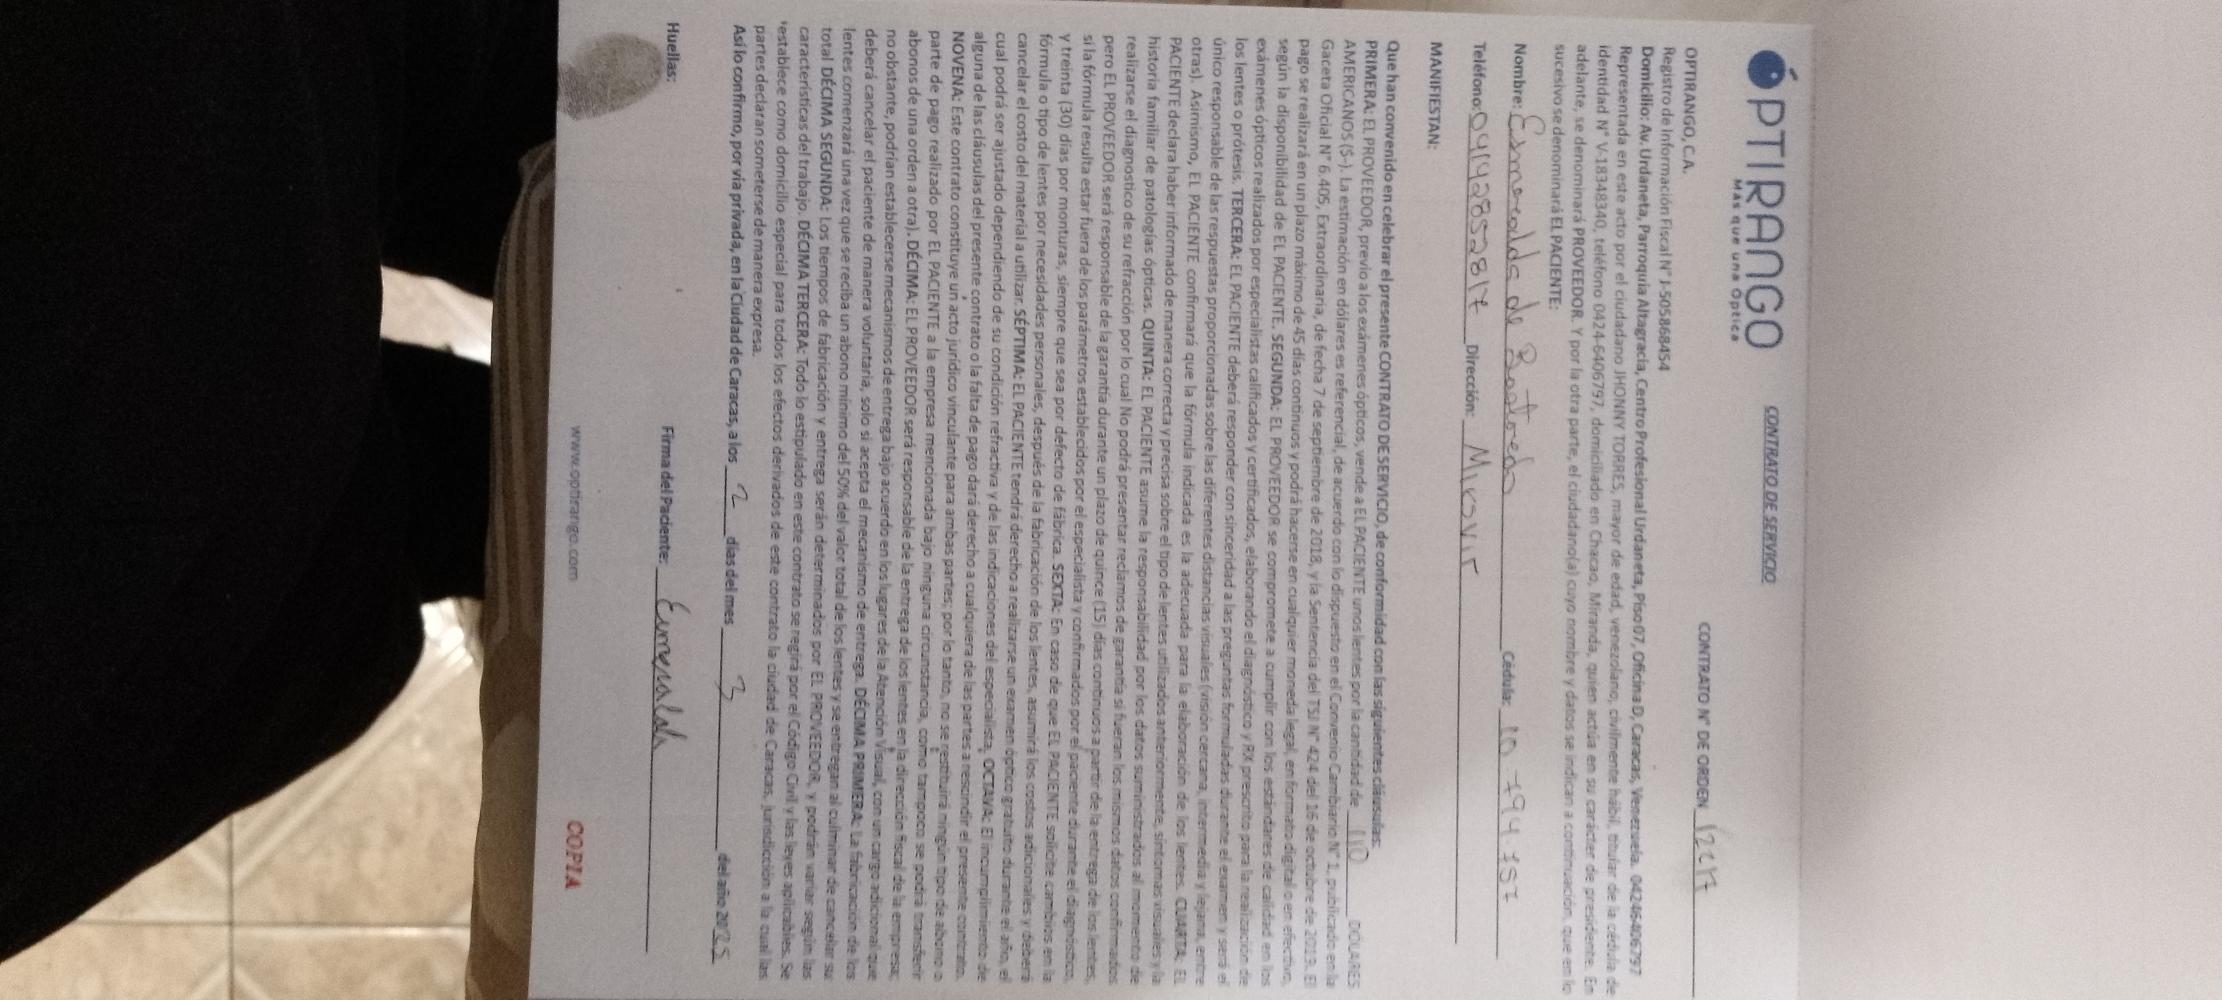 ÓPTIRANGO
Más que una Óptica
CONTRATO DE SERVICIO
CONTRATO N° DE ORDEN
OPTIRANGO, C.A.
Registro de Información Fiscal N° J-505868454
Domicilio: Av. Urdaneta, Parroquia Altagracia, Centro Profesional Urdaneta, Piso 07, Oficina D, Caracas, Venezuela. 04246406797
Representada en este acto por el ciudadano JHONNY TORRES, mayor de edad, venezolano, civilmente hábil, titular de la cédula de
identidad N° V-18348340, teléfono 0424-6406797, domiciliado en Chacao, Miranda, quien actúa en su carácter de presidente. En
adelante, se denominará PROVEEDOR. Y por la otra parte, el ciudadano(a) cuyo nombre y datos se indican a continuación, que en lo
sucesivo se denominará EL PACIENTE:
Nombre: Esmeralda de Cédula: 10 799 757
Teléfono: 04142852817 Dirección:
MANIFIESTAN:
Que han convenido en celebrar el presente CONTRATO DE SERVICIO, de conformidad con las siguientes cláusulas:
PRIMERA: EL PROVEEDOR, previo a los exámenes ópticos, vende a EL PACIENTE unos lentes por la cantidad de 110 DÓLARES
AMERICANOS ($-). La estimación en dólares es referencial, de acuerdo con lo dispuesto en el Convenio Cambiario N° 1, publicado en la
Gaceta Oficial N° 6.405, Extraordinaria, de fecha 7 de septiembre de 2018, y la Sentencia del TSJ N° 424 del 16 de octubre de 2019. El
pago se realizará en un plazo máximo de 45 días continuos y podrá hacerse en cualquier moneda legal, en formato digital o en efectivo,
según la disponibilidad de EL PACIENTE. SEGUNDA: EL PROVEEDOR se compromete a cumplir con los estándares de calidad en los
exámenes ópticos realizados por especialistas calificados y certificados, elaborando el diagnóstico y RX prescrito para la realización de
los lentes o prótesis. TERCERA: EL PACIENTE deberá responder con sinceridad a las preguntas formuladas durante el examen y será el
único responsable de las respuestas proporcionadas sobre las diferentes distancias visuales (visión cercana, intermedia y lejana, entre
otras). Asimismo, EL PACIENTE confirmará que la fórmula indicada es la adecuada para la elaboración de los lentes. CUARTA: EL
PACIENTE declara haber informado de manera correcta y precisa sobre el tipo de lentes utilizados anteriormente, síntomas visuales y la
historia familiar de patologías ópticas. QUINTA: EL PACIENTE asume la responsabilidad por los datos suministrados al momento de
realizarse el diagnostico de su refracción por lo cual No podrá presentar reclamos de garantía si fueran los mismos datos confirmados
pero EL PROVEEDOR será responsable de la garantía durante un plazo de quince (15) días continuos a partir de la entrega de los lentes,
si la fórmula resulta estar fuera de los parámetros establecidos por el especialista y confirmados por el paciente durante el diagnóstico,
y treinta (30) días por monturas, siempre que sea por defecto de fábrica. SEXTA: En caso de que EL PACIENTE solicite cambios en la
fórmula o tipo de lentes por necesidades personales, después de la fabricación de los lentes, asumirá los costos adicionales y deberá
cancelar el costo del material a utilizar. SÉPTIMA: EL PACIENTE tendrá derecho a realizarse un examen óptico gratuito durante el año, el
cual podrá ser ajustado dependiendo de su condición refractiva y de las indicaciones del especialista. OCTAVA: El incumplimiento de
alguna de las cláusulas del presente contrato o la falta de pago dará derecho a cualquiera de las partes a rescindir el presente contrato.
NOVENA: Este contrato constituye un acto jurídico vinculante para ambas partes; por lo tanto, no se restituirá ningún tipo de abono o
parte de pago realizado por EL PACIENTE a la empresa mencionada bajo ninguna circunstancia, como tampoco se podrá transferir
abonos de una orden a otra). DÉCIMA: EL PROVEEDOR será responsable de la entrega de los lentes en la dirección fiscal de la empresa;
no obstante, podrían establecerse mecanismos de entrega bajo acuerdo en los lugares de la Atención Visual, con un cargo adicional que
deberá cancelar el paciente de manera voluntaria, solo si acepta el mecanismo de entrega. DÉCIMA PRIMERA: La fabricación de los
lentes comenzará una vez que se reciba un abono mínimo del 50% del valor total de los lentes y se entregan al culminar de cancelar su
total DÉCIMA SEGUNDA: Los tiempos de fabricación y entrega serán determinados por EL PROVEEDOR, y podrán variar según las
características del trabajo. DÉCIMA TERCERA: Todo lo estipulado en este contrato se regirá por el Código Civil y las leyes aplicables. Se
establece como domicilio especial para todos los efectos derivados de este contrato la ciudad de Caracas, jurisdicción a la cual las
partes declaran someterse de manera expresa.
Así lo confirmo, por vía privada, en la Ciudad de Caracas, a los 2 días del mes 3 del año 2025
Huellas: Firma del Paciente: Esmeralda
www.optirango.com
COPIA